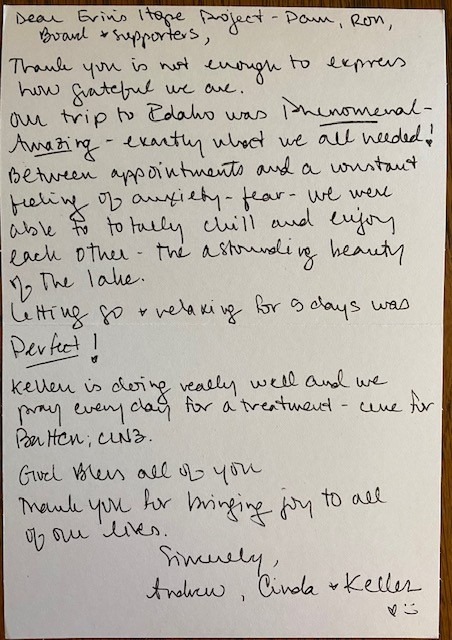 Dear Erin's Hope Project - Dawn, Ron,
Board & supporters,
Thank you is not enough to express
how grateful we are.
Our trip to Idaho was Phenomenal -
Amazing - exactly what we all needed!
Between appointments and a constant
feeling of anxiety - fear - we were
able to totally chill and enjoy
each other - the astounding beauty
of the lake.
Letting go & relaxing for 5 days was
Perfect!
Kellen is doing really well and we
pray every day for a treatment - cure for
Batten; CLN3.
God Bless all of you
Thank you for bringing joy to all
of our lives.
Sincerely,
Andrew, Cinda & Kellen